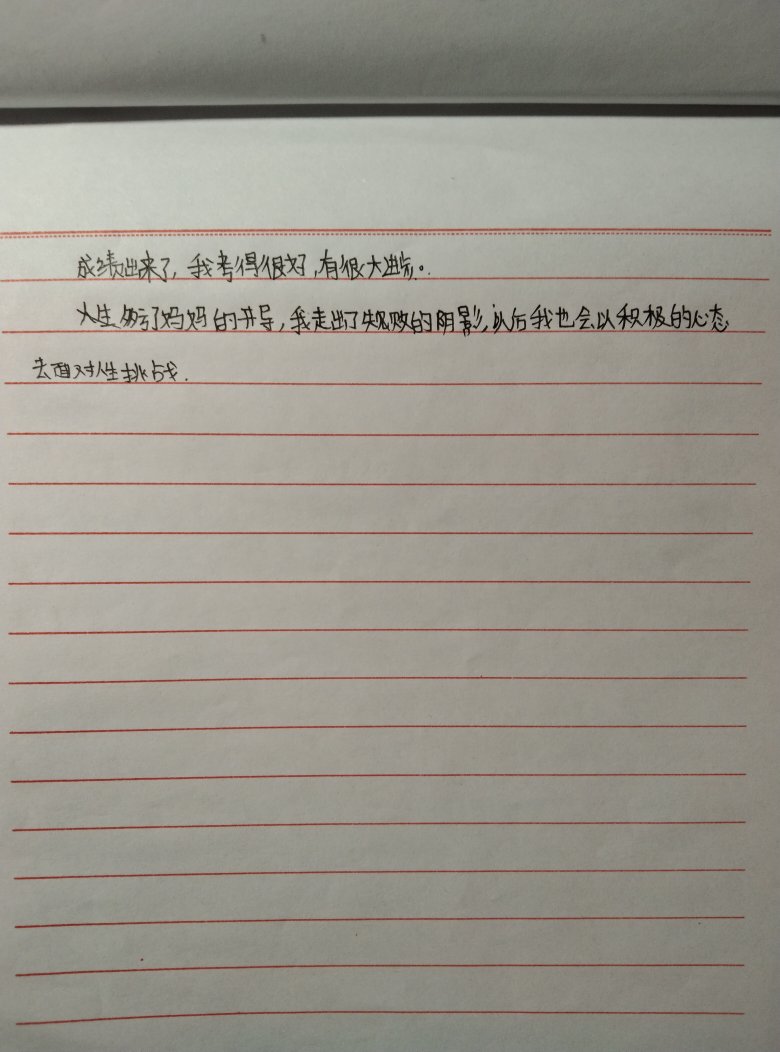 成绩出来了,我考得很好,有很大进步。
人生多亏了妈妈的开导,我走出了失败的阴影,以后我也会以积极的心态
去面对人生挑战.